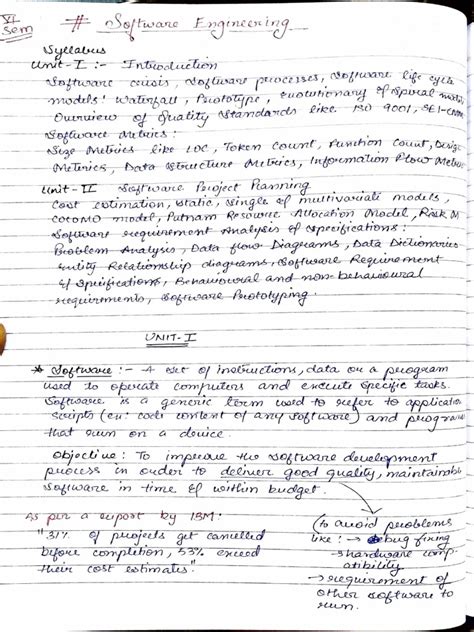 VI
Sem
# Software Engineering
Syllabus
Unit-I :- Introduction
Software crisis, Software processes, Software life cycle
models: Waterfall, Prototype, Evolutionary & Spiral models
Overview of Quality Standards like ISO 9001, SEI-CMM
Software Metrics:
Size Metrics like LOC, Token Count, Function Count, Design
Metrics, Data Structure Metrics, Information Flow Metrics
Unit-II Software Project Planning
Cost estimation, static, Single & multivariate models,
COCOMO model, Putnam Resource Allocation Model, Risk M
Software requirement Analysis & Specifications:
Problem Analysis, Data flow Diagrams, Data Dictionaries
Entity Relationship diagrams, Software Requirement
& Specifications, Behavioural and non-behavioural
requirements, Software Prototyping.
UNIT-I
* Software :- A set of instructions, data or a program
used to operate computers and execute specific tasks.
Software is a generic term used to refer to application
scripts (ex: code content of any software) and programs
that run on a device.
Objective: To improve the software development
process in order to deliver good quality, maintainable
software in time & within budget.
As per a report by IBM:
"31% of projects get cancelled
before completion, 53% exceed
their cost estimates."
(to avoid problems
like: → debug fixing
→ hardware comp-
atibility
→ requirement of
other software to
run.